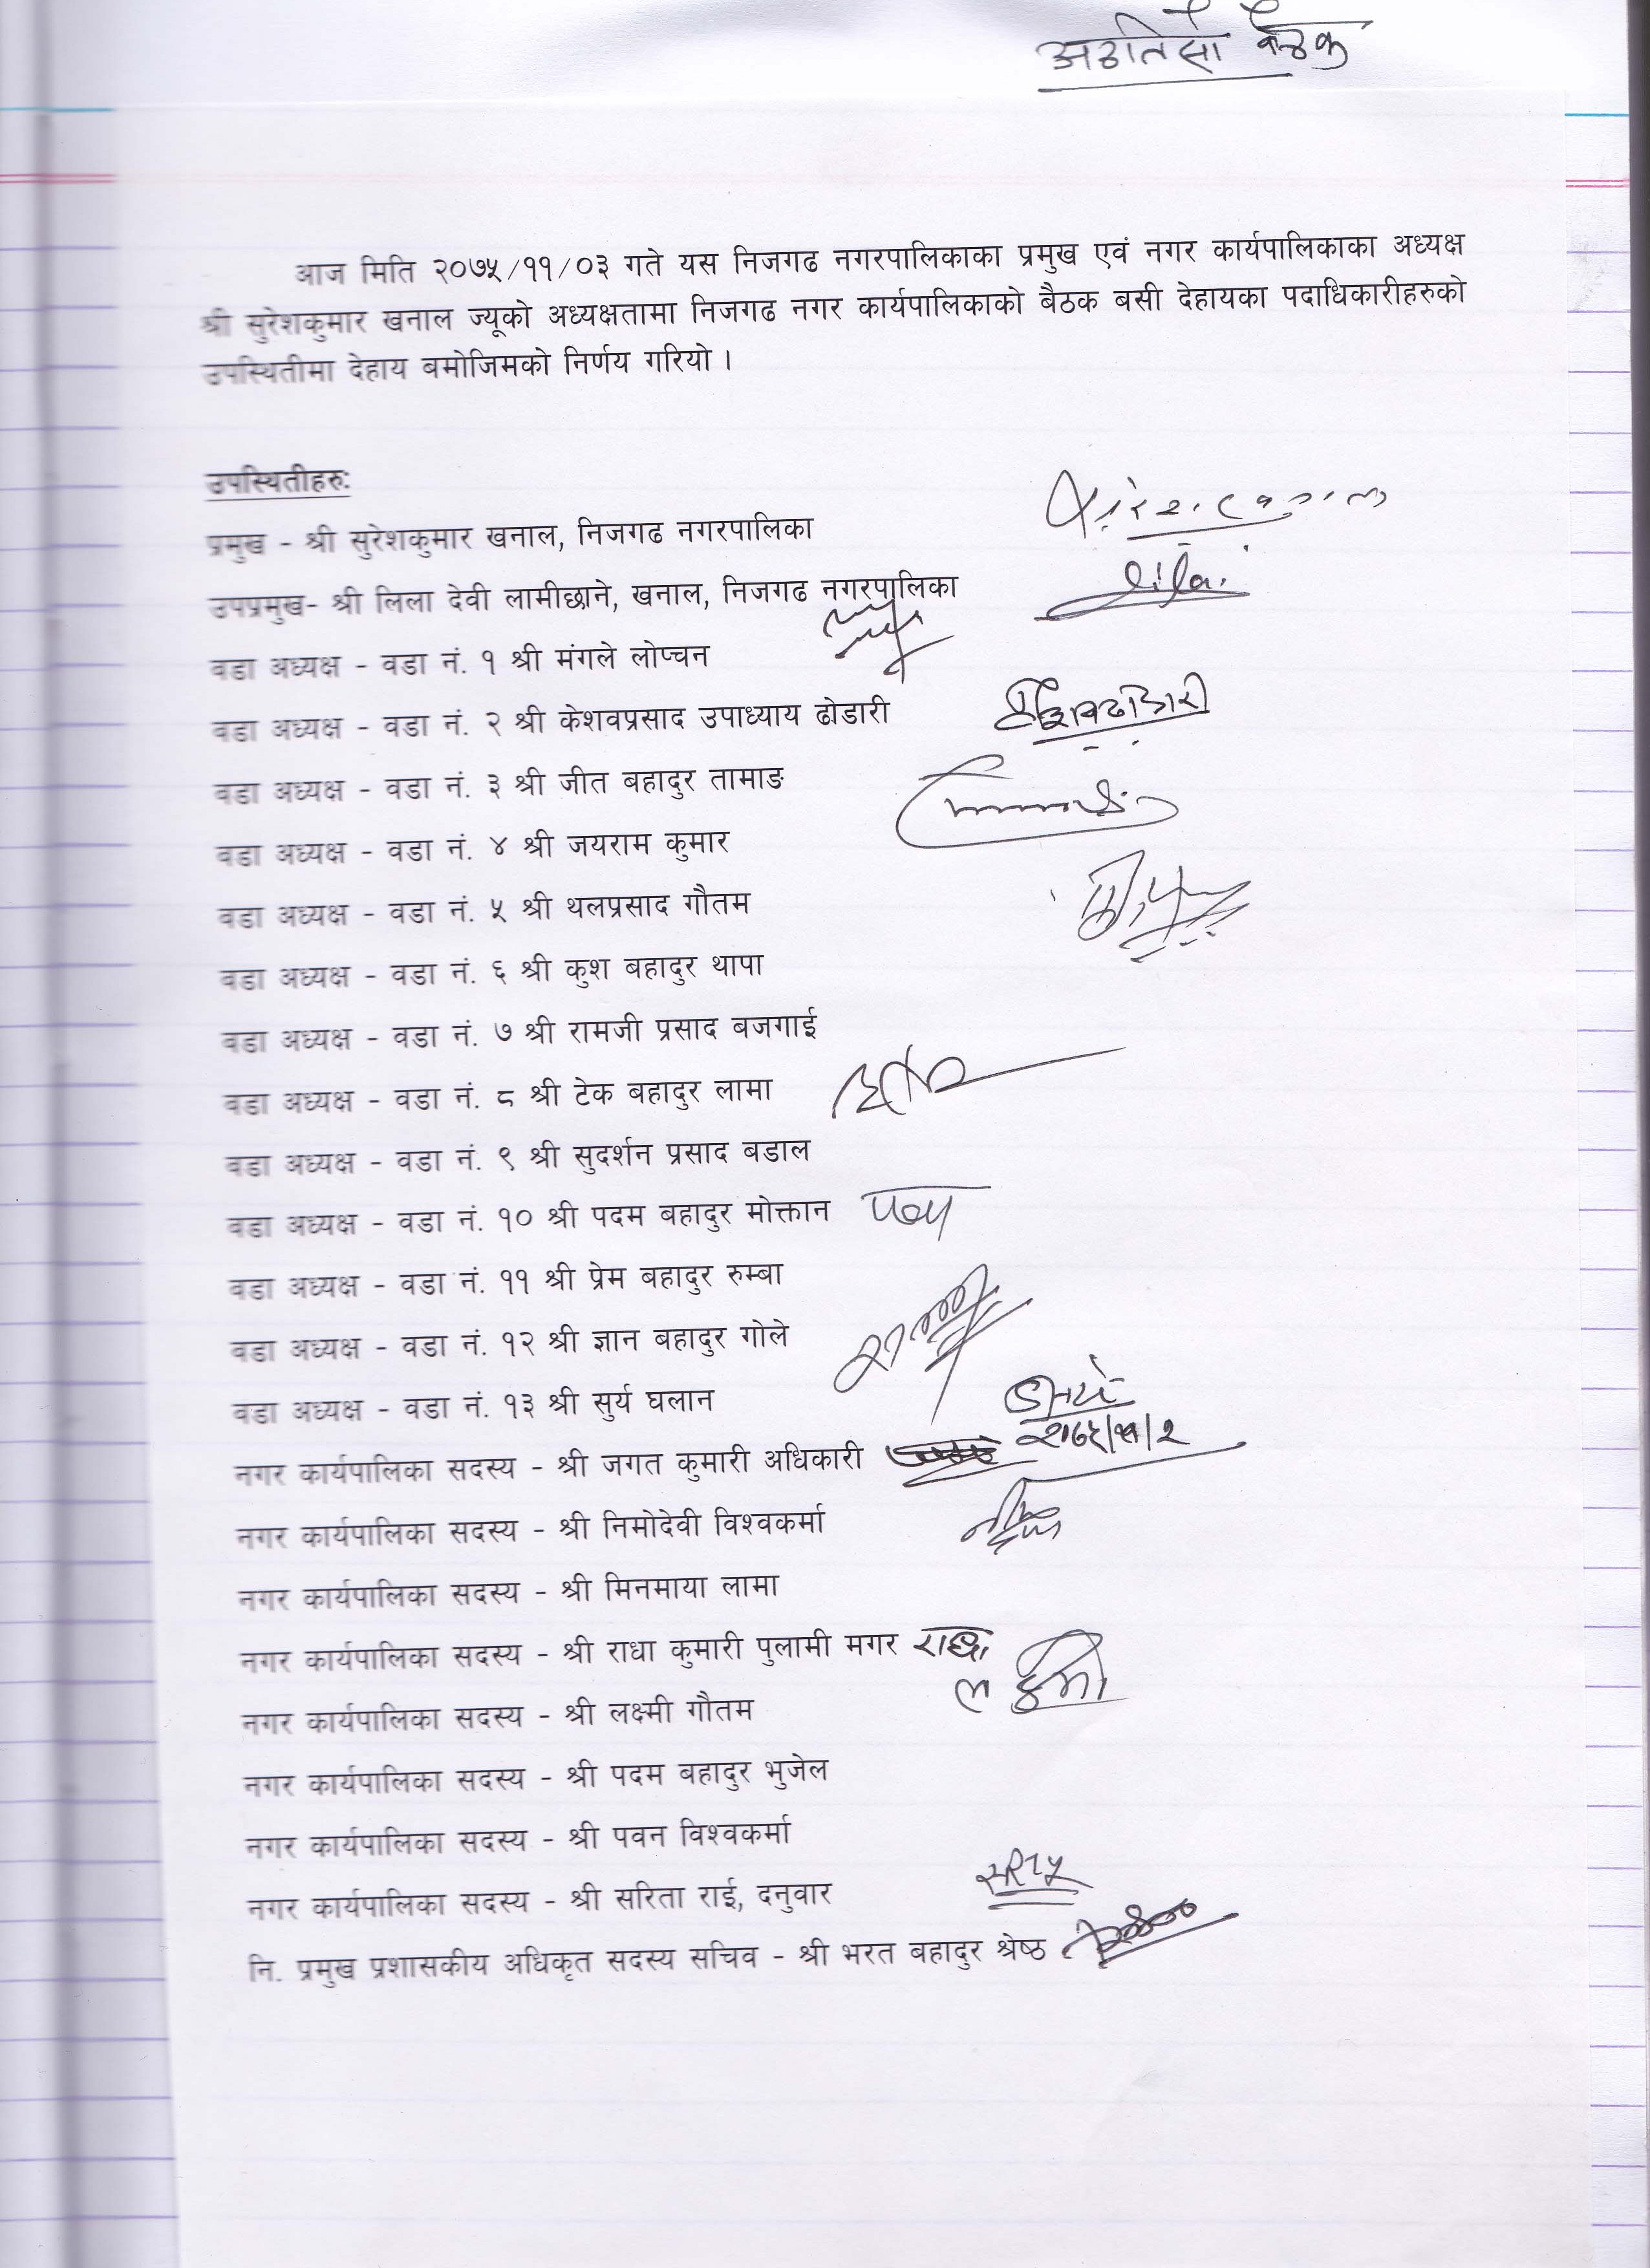 अठतिसौ बैठक
आज मिति २०७५/११/०३ गते यस निजगढ नगरपालिकाका प्रमुख एवं नगर कार्यपालिकाका अध्यक्ष
श्री सुरेशकुमार खनाल ज्यूको अध्यक्षतामा निजगढ नगर कार्यपालिकाको बैठक बसी देहायका पदाधिकारीहरुको
उपस्थितीमा देहाय बमोजिमको निर्णय गरियो ।
उपस्थितीहरु:
प्रमुख - श्री सुरेशकुमार खनाल, निजगढ नगरपालिका
उपप्रमुख- श्री लिला देवी लामीछाने, खनाल, निजगढ नगरपालिका
वडा अध्यक्ष - वडा नं. १ श्री मंगले लोप्चन
वडा अध्यक्ष - वडा नं. २ श्री केशवप्रसाद उपाध्याय ढोडारी
वडा अध्यक्ष - वडा नं. ३ श्री जीत बहादुर तामाङ
वडा अध्यक्ष - वडा नं. ४ श्री जयराम कुमार
वडा अध्यक्ष - वडा नं. ५ श्री थलप्रसाद गौतम
वडा अध्यक्ष - वडा नं. ६ श्री कुश बहादुर थापा
वडा अध्यक्ष - वडा नं. ७ श्री रामजी प्रसाद बजगाई
वडा अध्यक्ष - वडा नं. ८ श्री टेक बहादुर लामा
वडा अध्यक्ष - वडा नं. ९ श्री सुदर्शन प्रसाद बडाल
वडा अध्यक्ष - वडा नं. १० श्री पदम बहादुर मोक्तान
वडा अध्यक्ष - वडा नं. ११ श्री प्रेम बहादुर रुम्बा
वडा अध्यक्ष - वडा नं. १२ श्री ज्ञान बहादुर गोले
वडा अध्यक्ष - वडा नं. १३ श्री सुर्य घलान
नगर कार्यपालिका सदस्य - श्री जगत कुमारी अधिकारी
नगर कार्यपालिका सदस्य - श्री निमोदेवी विश्वकर्मा
नगर कार्यपालिका सदस्य - श्री मिनमाया लामा
नगर कार्यपालिका सदस्य - श्री राधा कुमारी पुलामी मगर राधा
नगर कार्यपालिका सदस्य - श्री लक्ष्मी गौतम लक्ष्मी
नगर कार्यपालिका सदस्य - श्री पदम बहादुर भुजेल
नगर कार्यपालिका सदस्य - श्री पवन विश्वकर्मा
नगर कार्यपालिका सदस्य - श्री सरिता राई, दनुवार
नि. प्रमुख प्रशासकीय अधिकृत सदस्य सचिव - श्री भरत बहादुर श्रेष्ठ